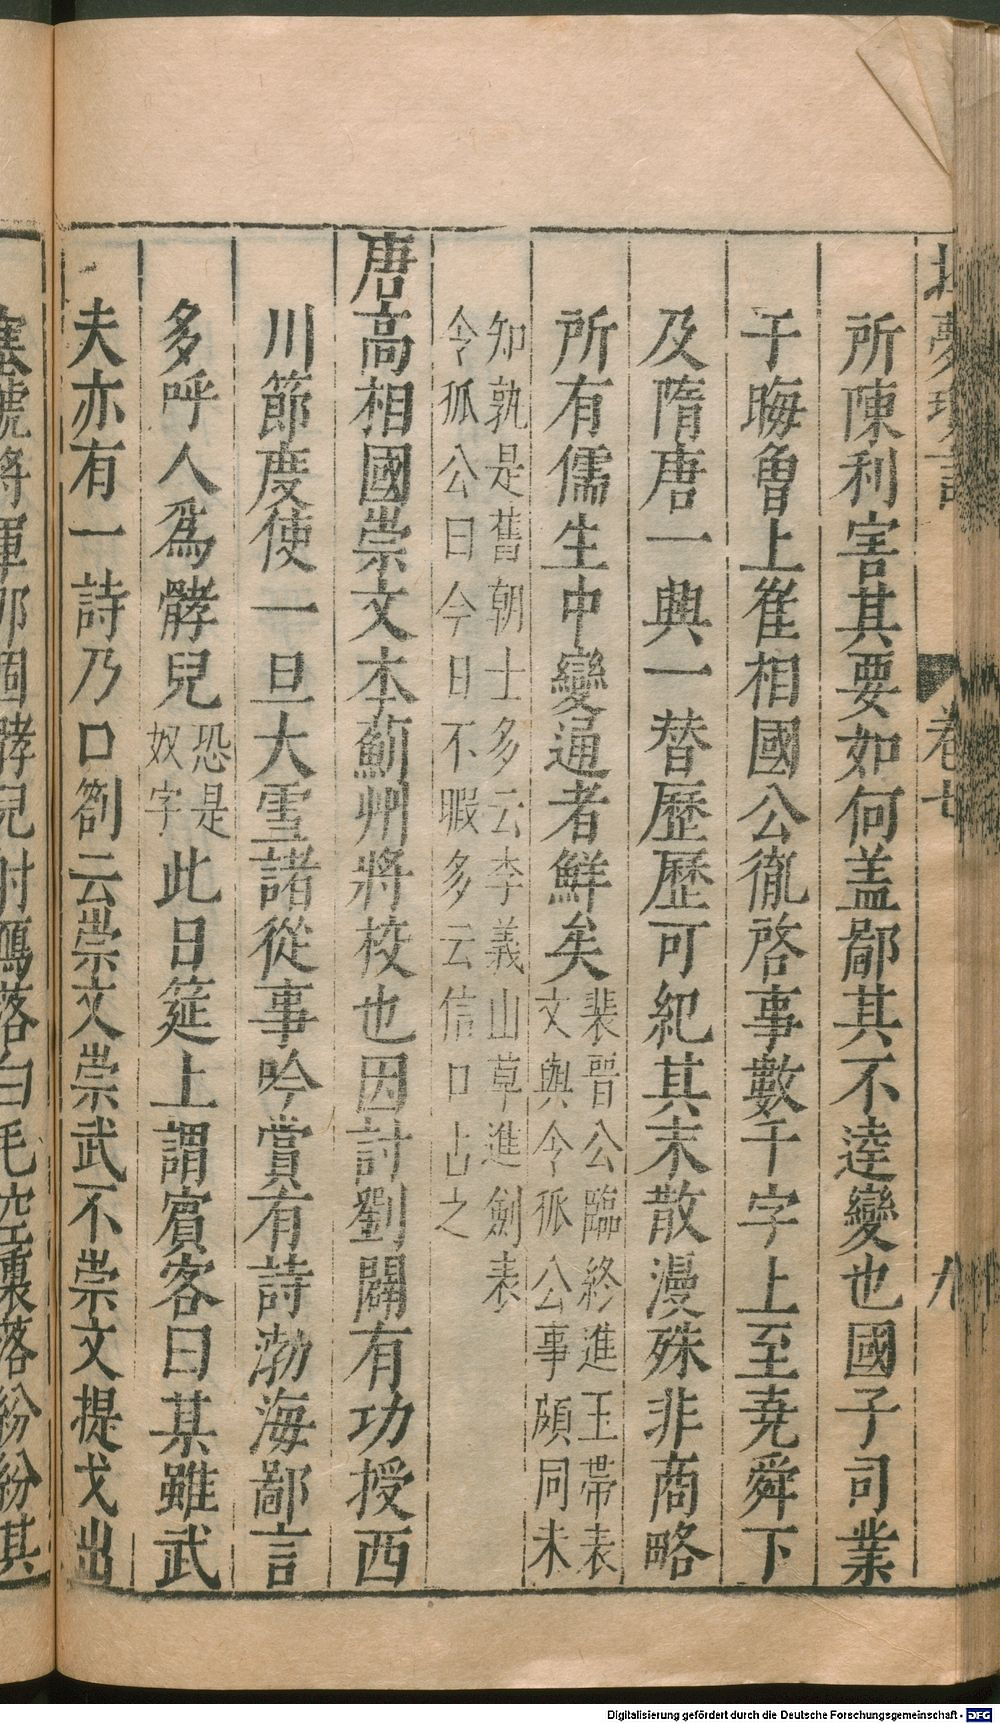 北夢瑣言 卷七 九
所陳利害其要如何盖鄙其不逹變也國子司業
于晦曽上崔相國公徹啓事數千字上至尭舜下
及隋唐一興一替歷歷可紀其末散漫殊非商略
所有儒生中變通者鮮矣裴晋公臨終進玉帶表文與令狐公事頗同未
知孰是舊朝士多云李義山草進劍表
令狐公曰今日不暇多云信口占之
唐高相國崇文本薊州將校也因討劉闢有功授西
川節度使一旦大雪諸從事吟賞有詩渤海鄙言
多呼人爲髇兒恐是奴字此日筵上謂賓客曰某雖武
夫亦有一詩乃口劄云崇文崇武不崇文提戈出
塞號將軍那個髇兒射鴈落白毛空裏落紛紛其
Digitalisierung gefördert durch die Deutsche Forschungsgemeinschaft - DFG